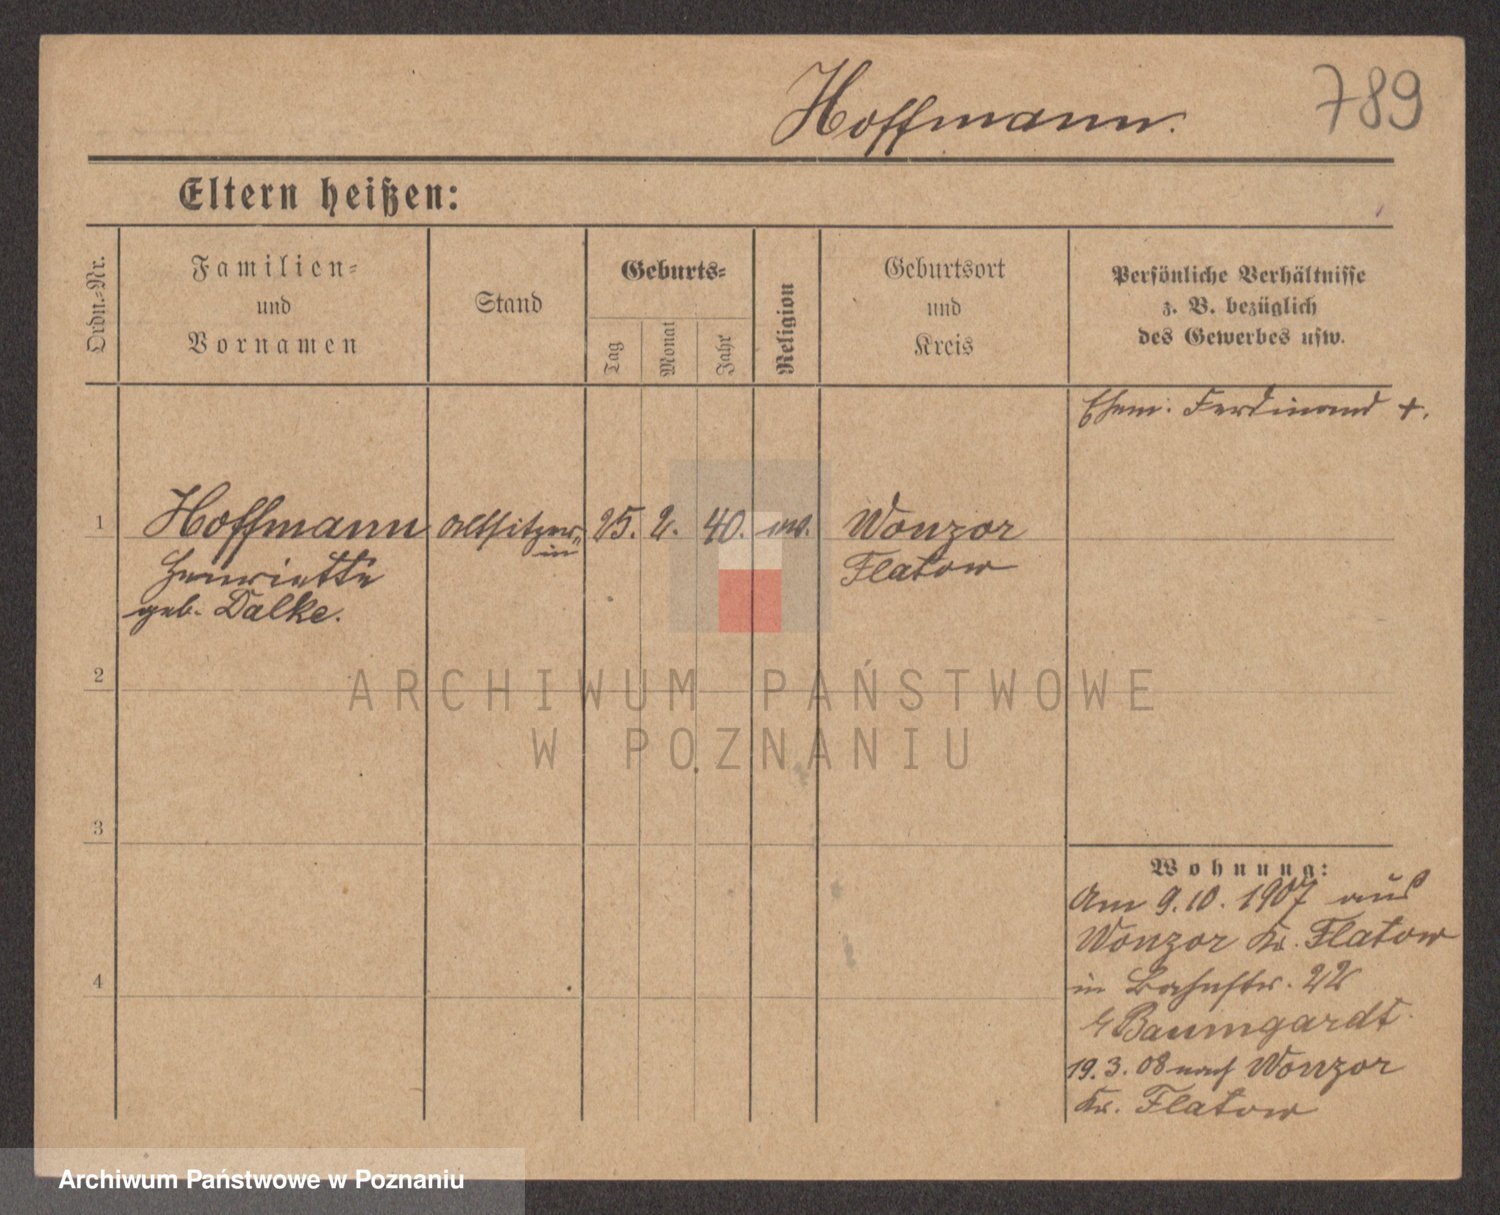 Hoffmann.
789
Eltern heißen:
Ordn.-Nr.
Familien-
und
Vornamen
Stand
Geburts-
Tag
Monat
Jahr
Religion
Geburtsort
und
Kreis
Persönliche Verhältnisse
z. B. bezüglich
des Gewerbes usw.
Ehem. Ferdinand +.
1
Hoffmann
Henriette
geb. Dalke.
Altsitzer-
in
25.
2.
40.
ev.
Wonzor
Flatow
2
ARCHIWUM PAŃSTWOWE
W POZNANIU
3
4
Wohnung:
Am 9.10.1907 aus
Wonzor Kr. Flatow
in Bahnstr. 22
Baumgardt
19.3.08 nach Wonzor
Kr. Flatow
Archiwum Państwowe w Poznaniu